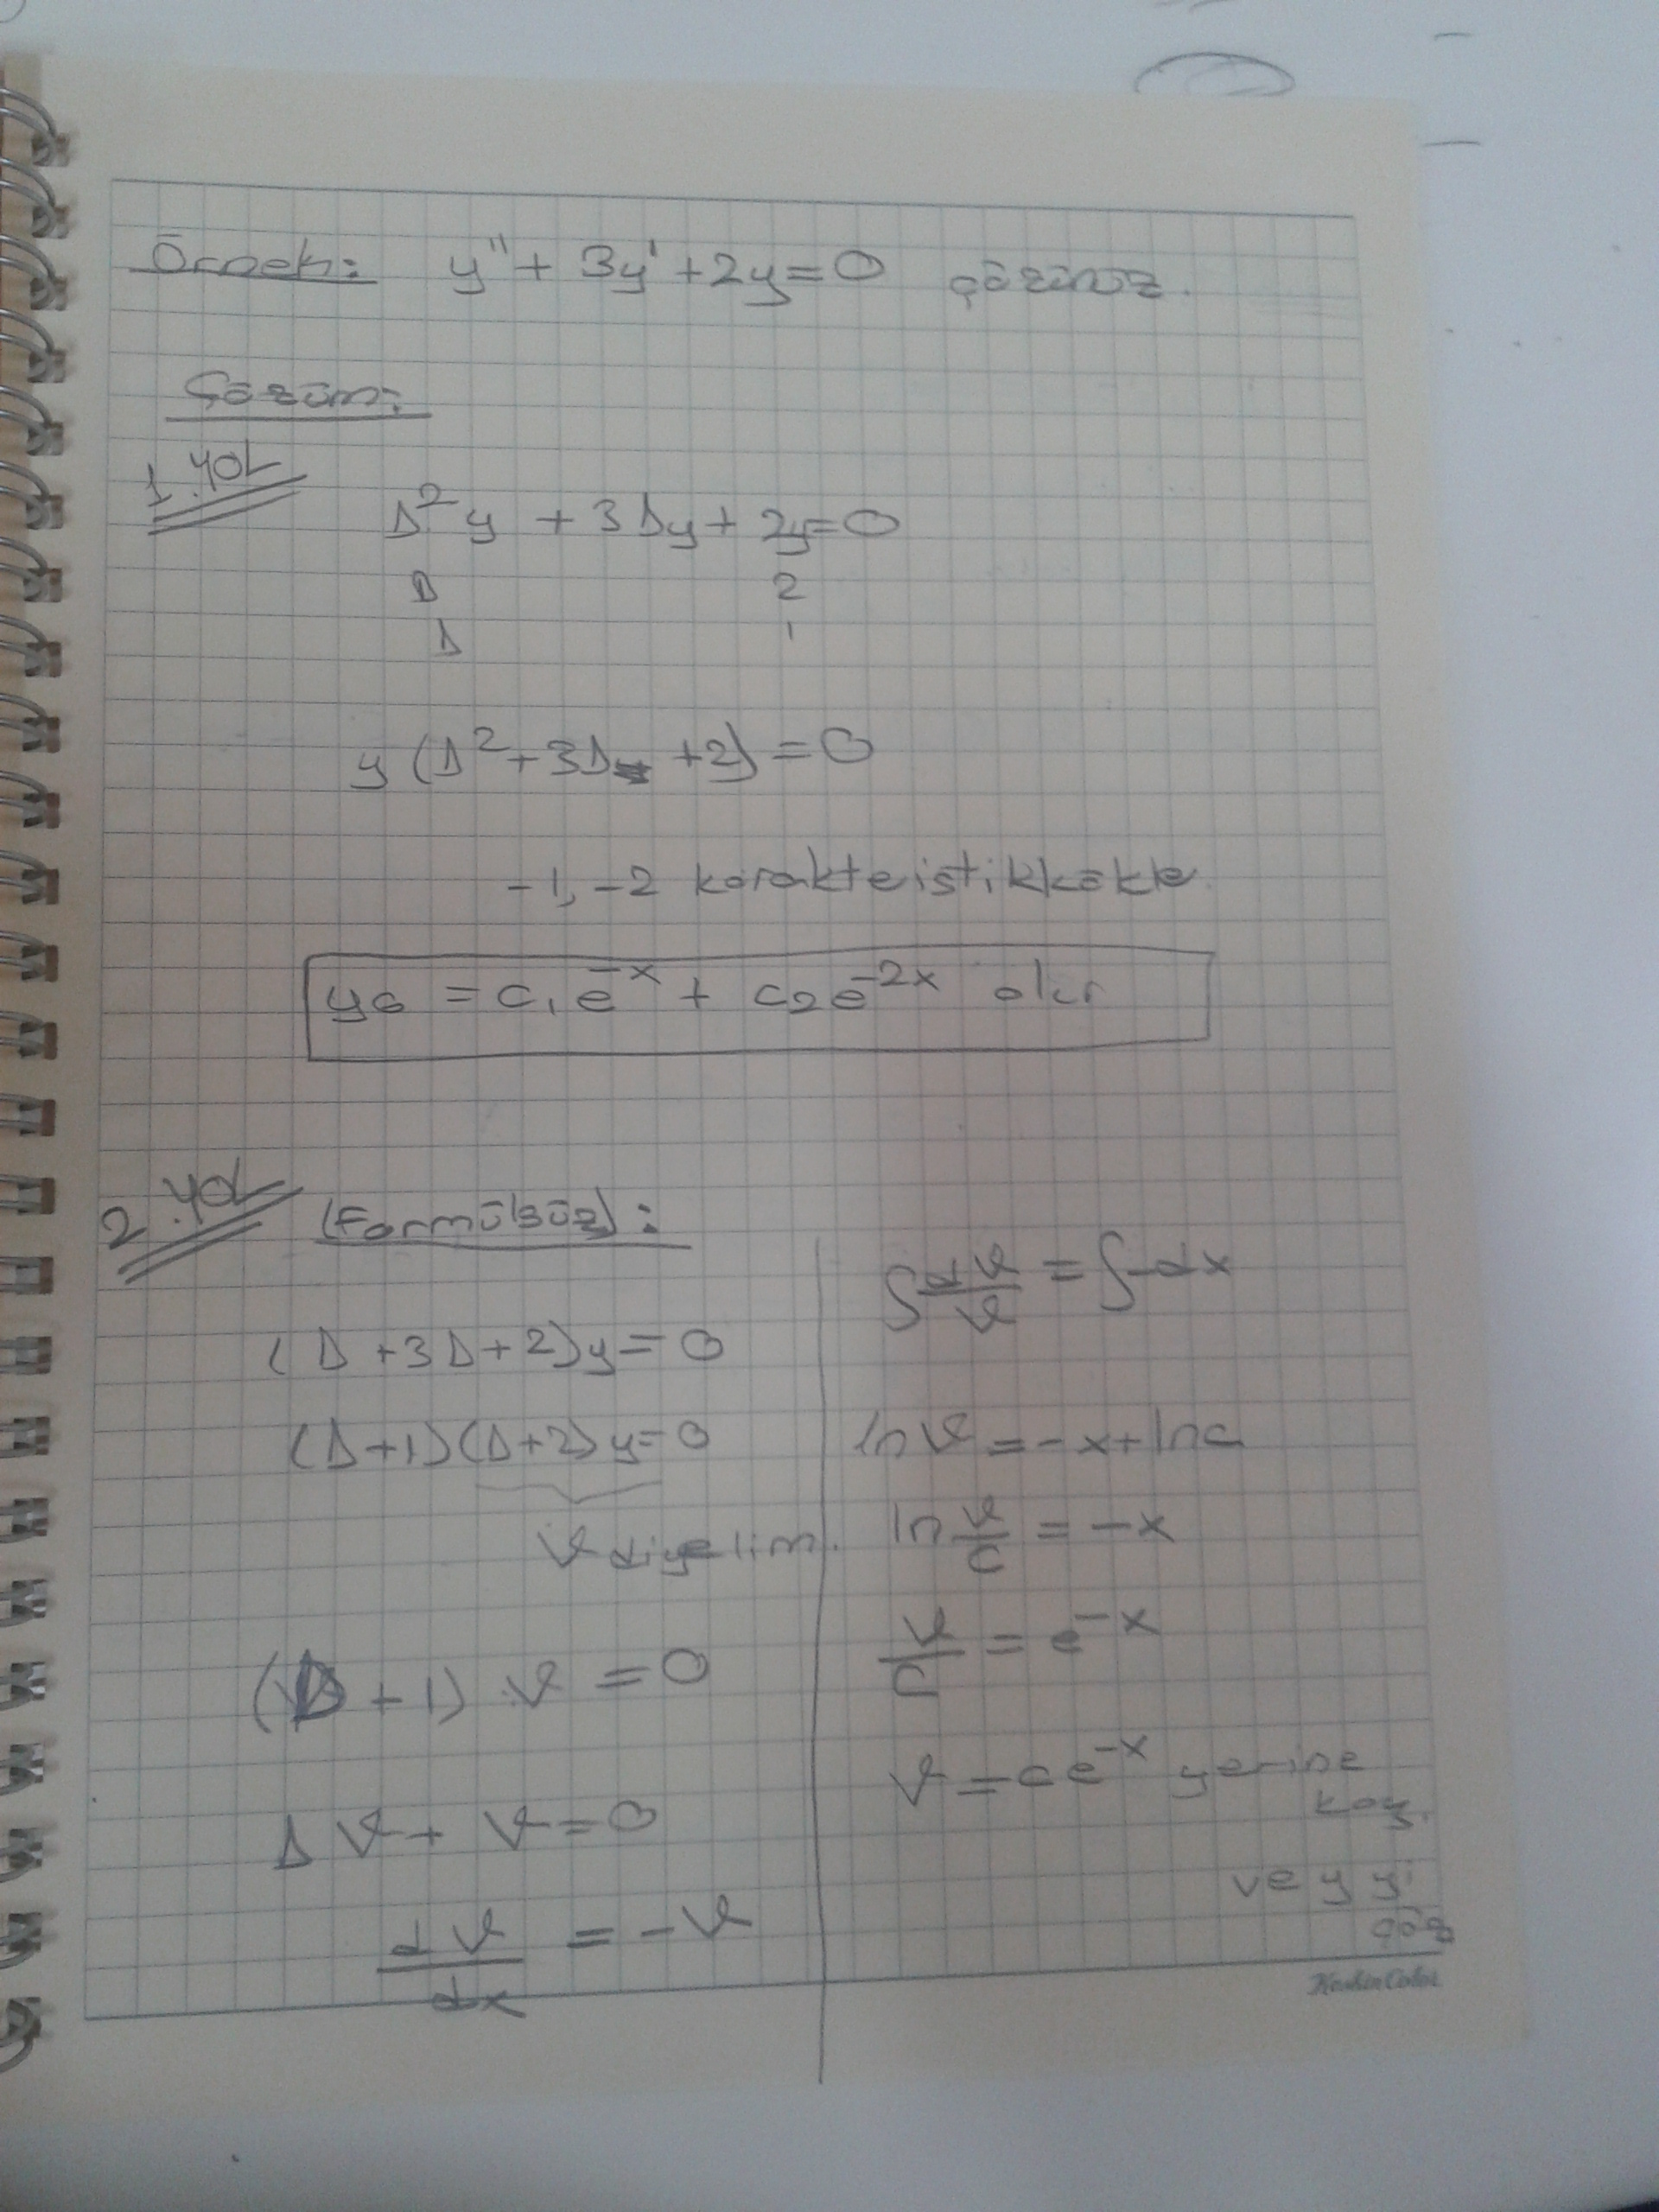 Örnek: y'' + 3y' + 2y = 0 çözünüz.
Çözüm:
1.YOL
D²y + 3Dy + 2y = 0
D 2
D 1
y (D² + 3D + 2) = 0
-1, -2 karakteistik kökle
yö = c₁e⁻ˣ + c₂e⁻²ˣ olur
2.YOL (Formülsüz):
(D + 3D + 2)y = 0
(D+1)(D+2)y = 0
v diyelim.
(D + 1) v = 0
D v + v = 0
dv/dx = -v
∫ dv/v = ∫ -dx
ln v = -x + ln c
ln v/c = -x
v/c = e⁻ˣ
v = c e⁻ˣ yerine
koy.
ve y yi
çöz
KeskinColor